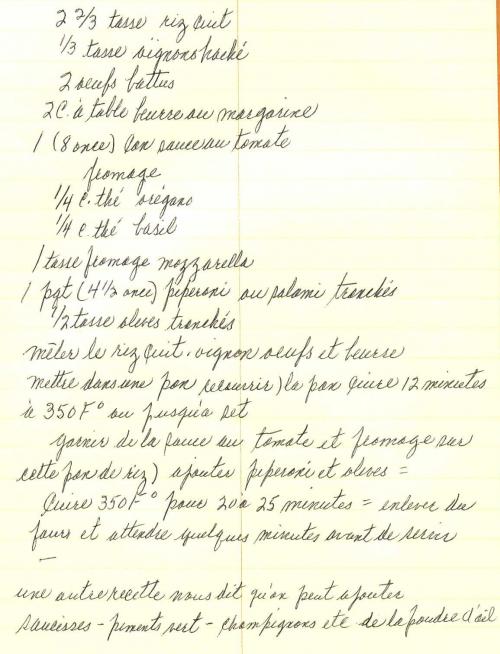 2 2/3 tasse riz cuit
1/3 tasse oignons haché
2 oeufs battus
2 C. à table beurre ou margarine
1 (8 once) can sauce au tomate
fromage
1/4 c. thé orégano
1/4 c. thé basil
1 tasse fromage mozzarella
1 pqt (4 1/2 once) piperoni ou salami tranchés
1/2 tasse olives tranchés
mêler le riz cuit - oignon oeufs et beurre
mettre dans une pan (recouvrir) la pan cuire 12 minutes
à 350 F° ou jusqu'à set
garnir de la sauce au tomate et fromage sur
cette pan de riz) ajouter piperoni et olives =
cuire 350 F° pour 20 à 25 minutes = enlever du
four et attendre quelques minutes avant de servir
—
une autre recette nous dit qu'on peut ajouter
saucisses - piments vert - champignons etc de la poudre d'ail